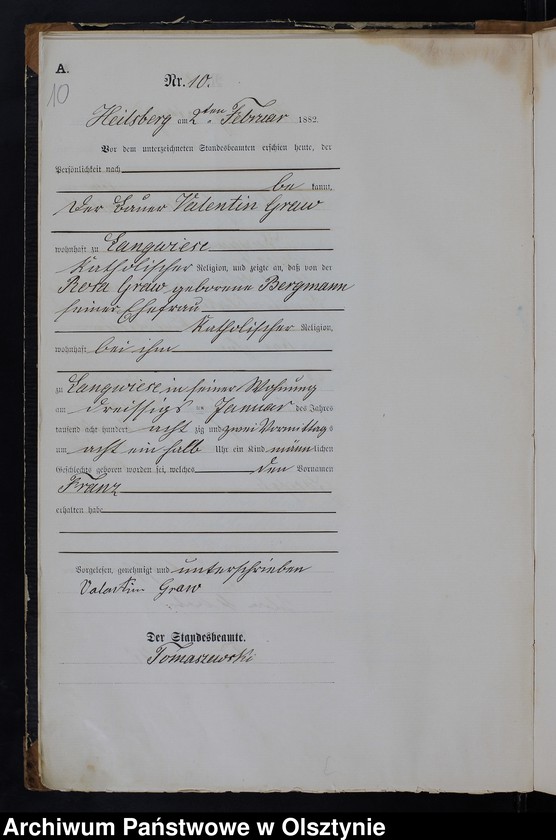 A.
10
Nr. 10.
Heilsberg am 2ten Februar 1882.
Vor dem unterzeichneten Standesbeamten erschien heute, der
Persönlichkeit nach
be kannt,
der Bauer Valentin Graw
wohnhaft zu Langwiese
Katholischer Religion, und zeigte an, daß von der
Rosa Graw geborene Bergmann
seiner Ehefrau
Katholischer Religion,
wohnhaft bei ihm
zu Langwiese in seiner Wohnung
am dreissigs ten Januar des Jahres
tausend acht hundert acht zig und zwei Vormittags
um acht ein halb Uhr ein Kind männlichen
Geschlechts geboren worden sei, welches den Vornamen
Franz
erhalten habe
Vorgelesen, genehmigt und unterschrieben
Valentin Graw
Der Standesbeamte.
Tomaszewski
Archiwum Państwowe w Olsztynie